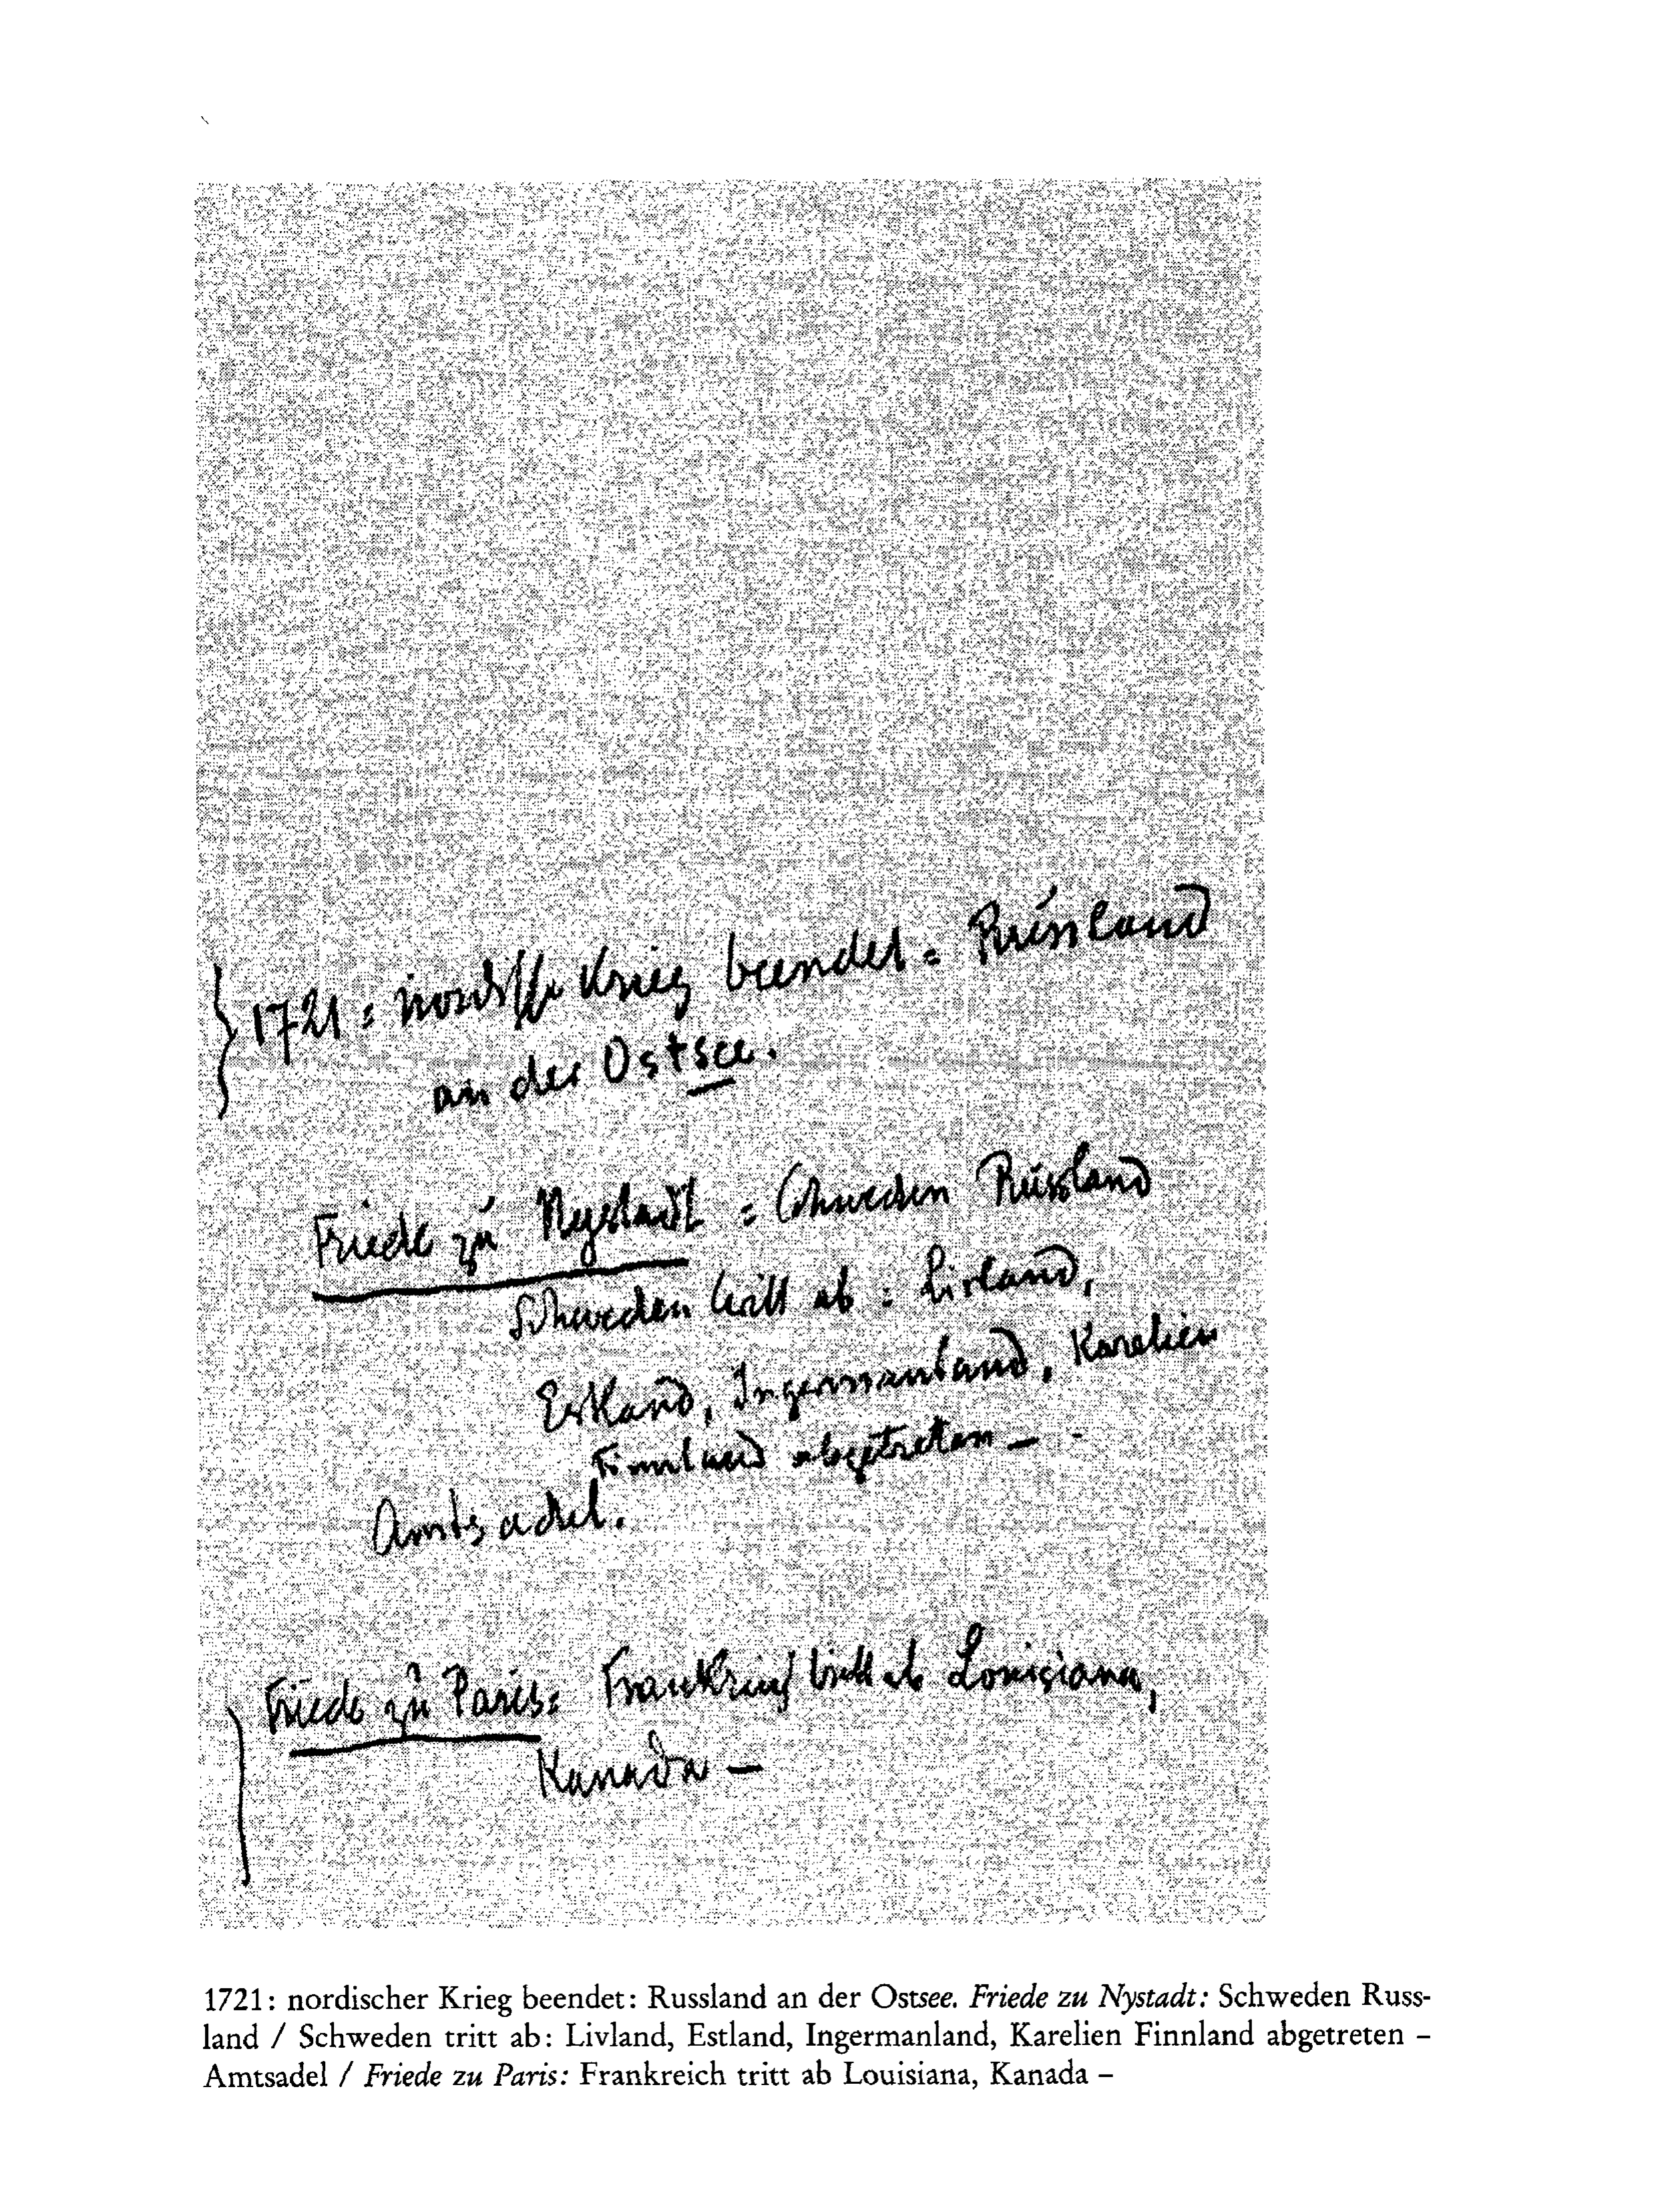 1721: nordischer Krieg beendet: Russland
an der Ostsee.
Friede zu Nystadt: Schweden Russland
Schweden tritt ab: Livland,
Estland, Ingermanland, Karelien
Finnland abgetreten –
Amtsadel.
Friede zu Paris: Frankreich tritt ab Louisiana,
Kanada –
1721: nordischer Krieg beendet: Russland an der Ostsee. Friede zu Nystadt: Schweden Russ-
land / Schweden tritt ab: Livland, Estland, Ingermanland, Karelien Finnland abgetreten –
Amtsadel / Friede zu Paris: Frankreich tritt ab Louisiana, Kanada –